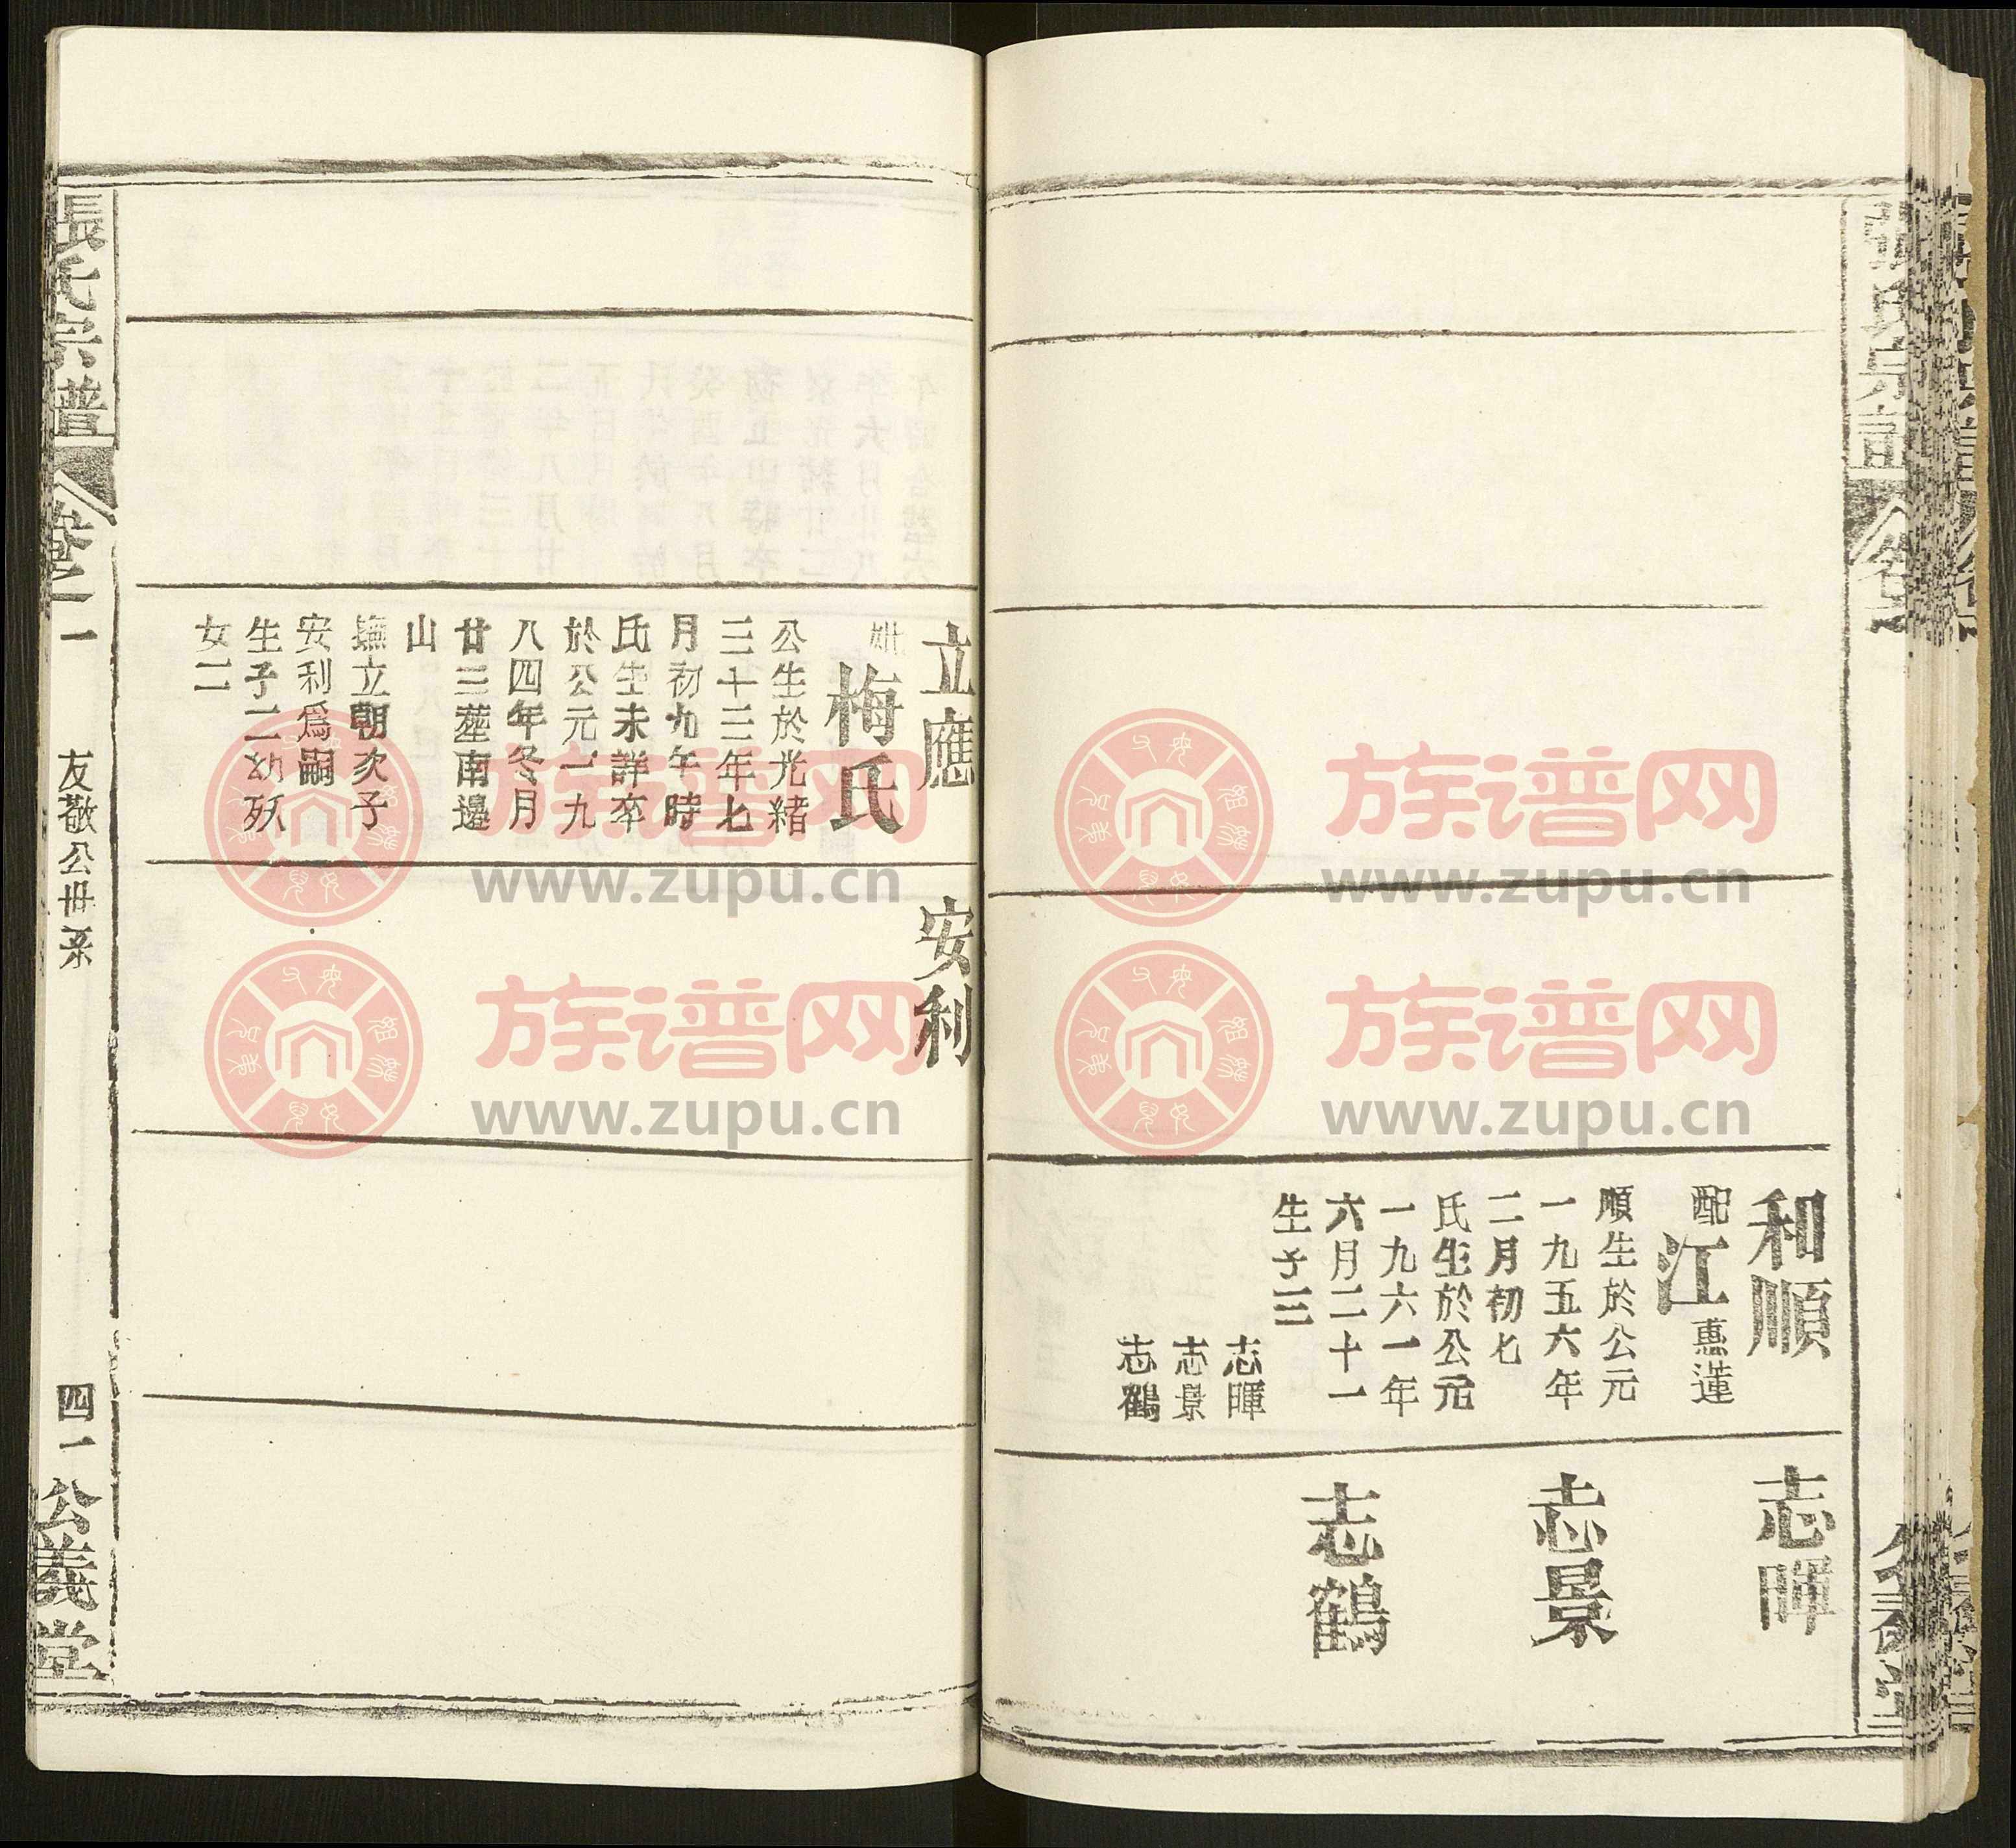 和順
配江惠蓮
順生於公元
一九五六年
二月初七
氏生於公元
一九六一年
六月二十一
生子三
志暉
志景
志鶴
志暉
志景
志鶴
公義堂
立應
梅氏
公生於光緒
三十三年七
月初九午時
氏生未詳卒
於公元一九
八四年冬月
廿三塟南邊
山
撫立朝次子
安利爲嗣
生子二幼殀
女二
安利
張氏宗譜
卷之一
友敬公世系
四一
公義堂
族谱网
www.zupu.cn
族谱网
www.zupu.cn
族谱网
www.zupu.cn
族谱网
www.zupu.cn